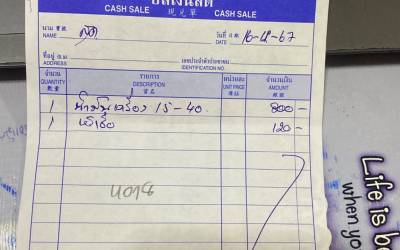 บิลเงินสด
CASH SALE 現兌單 CASH SALE
นาม 寶號 NAME สด
วันที่ 日期 DATE
ที่อยู่ 住址 ADDRESS
เลขประจำตัวประชาชน IDENTIFICATION NO.
จำนวน QUANTITY 數量
รายการ DESCRIPTION 貨名
หน่วยละ UNIT PRICE 價錢
จำนวนเงิน AMOUNT 銀額
1 น้ำมันเครื่อง 15-40 800-
1 120-
Life is be
when yo